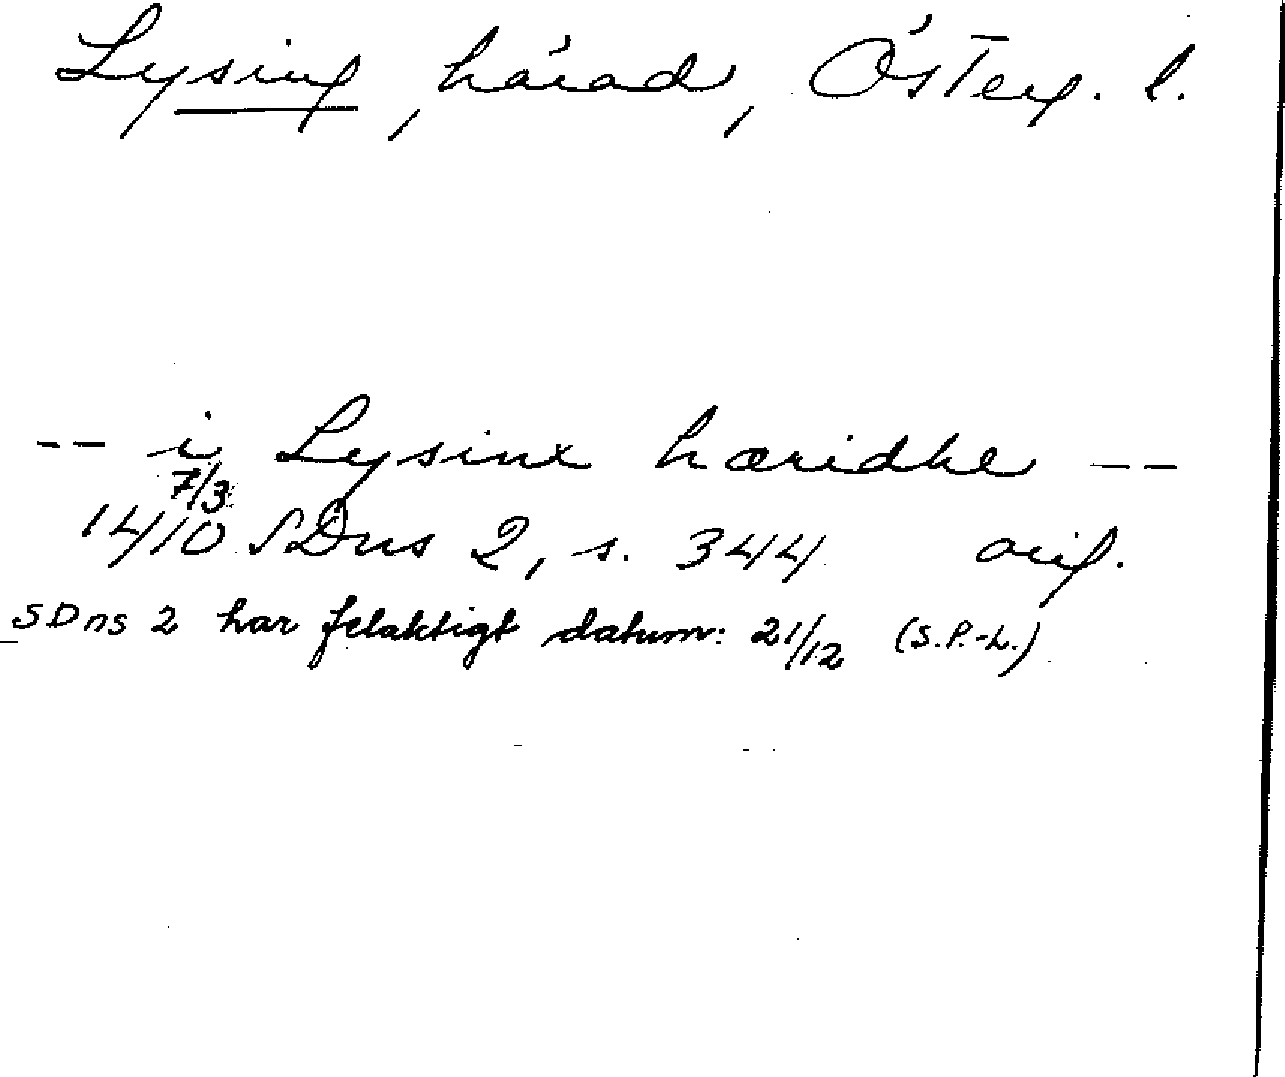 Lysing, härad, Österg. l.
-- i Lysinx hæridhe --
7/3
1410 SDns 2, s. 344 orig.
SDns 2 har felaktigt datum: 21/12 (S.P.-L.)